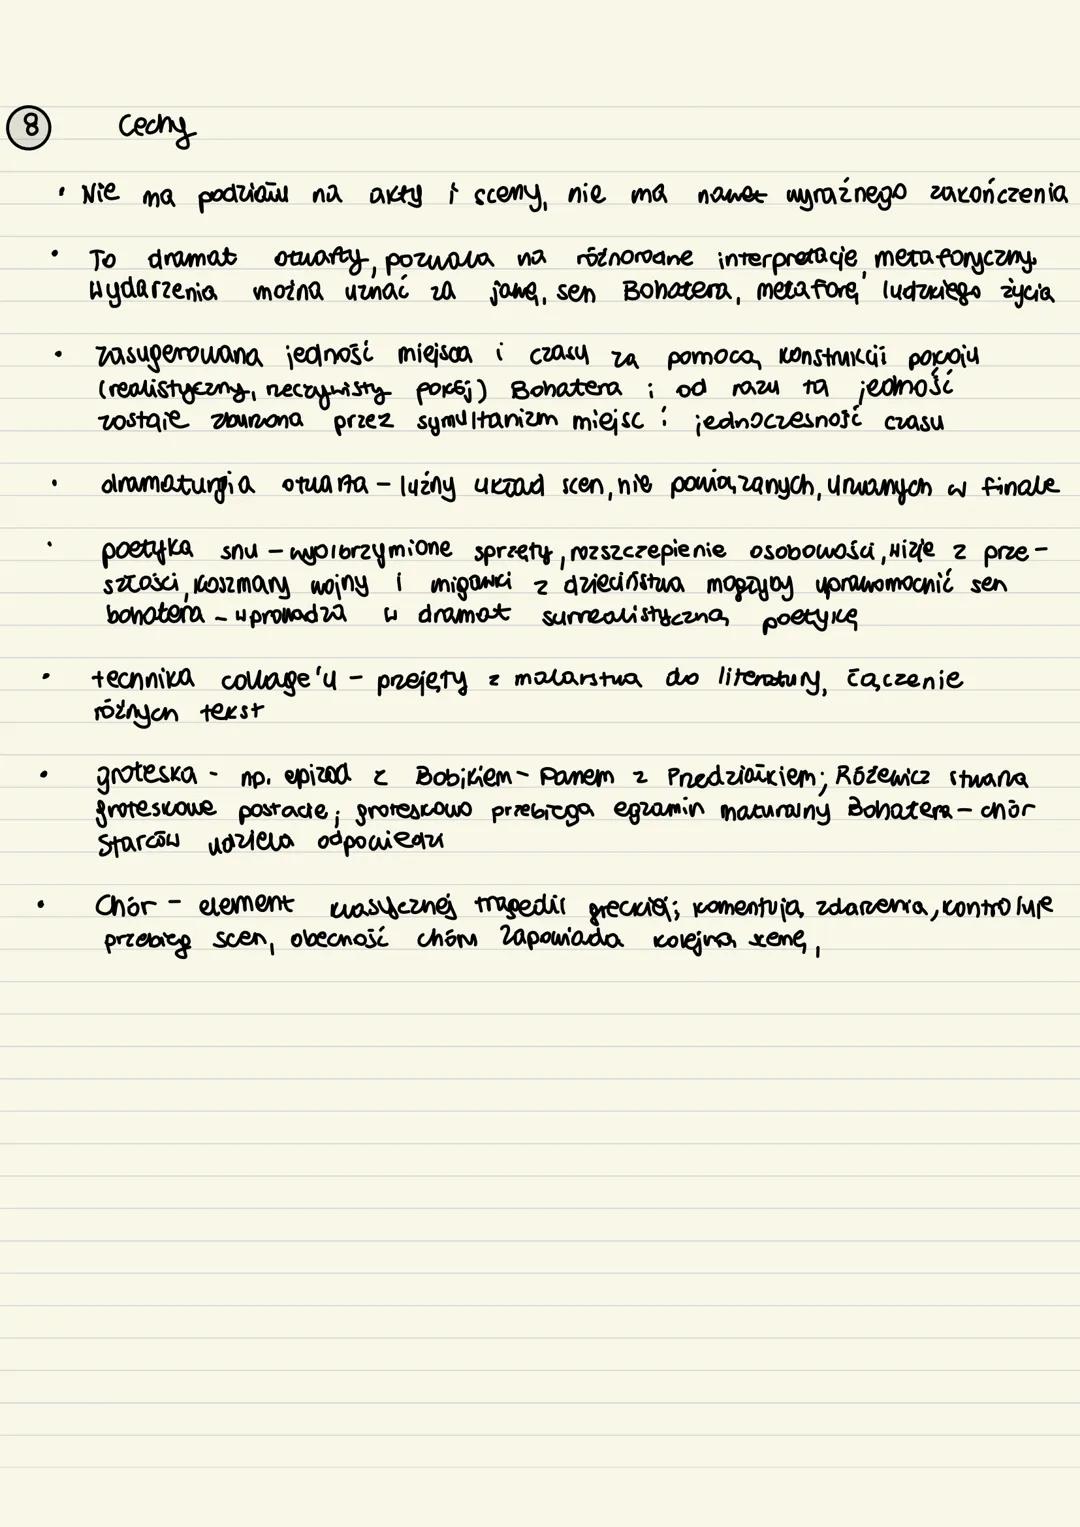 8 Cechy
• Nie ma podziału na akty i sceny, nie ma nawet wyraźnego zakończenia
• To dramat otwarty, pozwala na różnorodne interpretacje, metaforyczny.
Wydarzenia można uznać za jawę, sen Bohatera, metaforę ludzkiego życia
• zasugerowana jedność miejsca i czasu za pomocą konstrukcji pokoju
(realistyczny, rzeczywisty pokój) Bohatera; od razu ta jedność
zostaje zburzona przez symultanizm miejsc i jednoczesność czasu
• dramaturgia otwarta – luźny układ scen, nie powiązanych, urwanych w finale
• poetyka snu – wyolbrzymione sprzęty, rozszczepienie osobowości, wizje z prze-
szłości, koszmary wojny i migawki z dzieciństwa mogłyby uprawomocnić sen
bohatera – wprowadza w dramat surrealistyczną poetykę
• technika collage'u – przejęty z malarstwa do literatury, łączenie
różnych tekst
• groteska – np. epizod z Bobikiem – Panem z Przedziałkiem; Różewicz stwarza
groteskowe postacie; groteskowo przebiega egzamin maturalny Bohatera – chór
Starców udziela odpowiedzi
• Chór – element klasycznej tragedii greckiej; komentują zdarzenia, kontroluje
przebieg scen, obecność chóru zapowiada kolejną scenę,